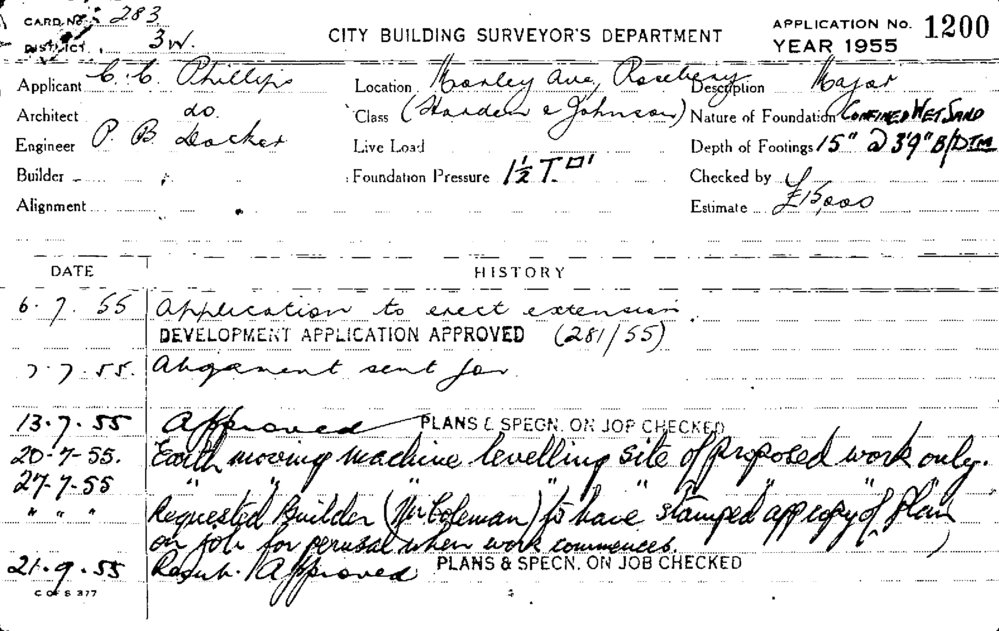 CARD No. 283
DISTRICT 3W.
CITY BUILDING SURVEYOR'S DEPARTMENT
APPLICATION No. 1200
YEAR 1955
Applicant C. C. Phillips Location Morley Ave, Rosebery Description Major
Architect do. Class (Harden & Johnson) Nature of Foundation CONFINED WET SAND
Engineer P. B. Docker Live Load Depth of Footings 15" @ 3'9" B/DTM
Builder Foundation Pressure 1½ T.□' Checked by
Alignment Estimate £15,000
DATE HISTORY
6.7.55 Application to erect extension
DEVELOPMENT APPLICATION APPROVED (281/55)
7.7.55. Alignment sent for
13.7.55 Approved PLANS & SPECN. ON JOB CHECKED
20-7-55. Earth moving machine levelling site of proposed work only.
27-7-55 " " " " " " " "
" " " Requested Builder (Mr Coleman) to have stamped app copy of plan
on job for perusal when work commences.
21.9.55 Resub. Approved PLANS & SPECN. ON JOB CHECKED
C OF S 377